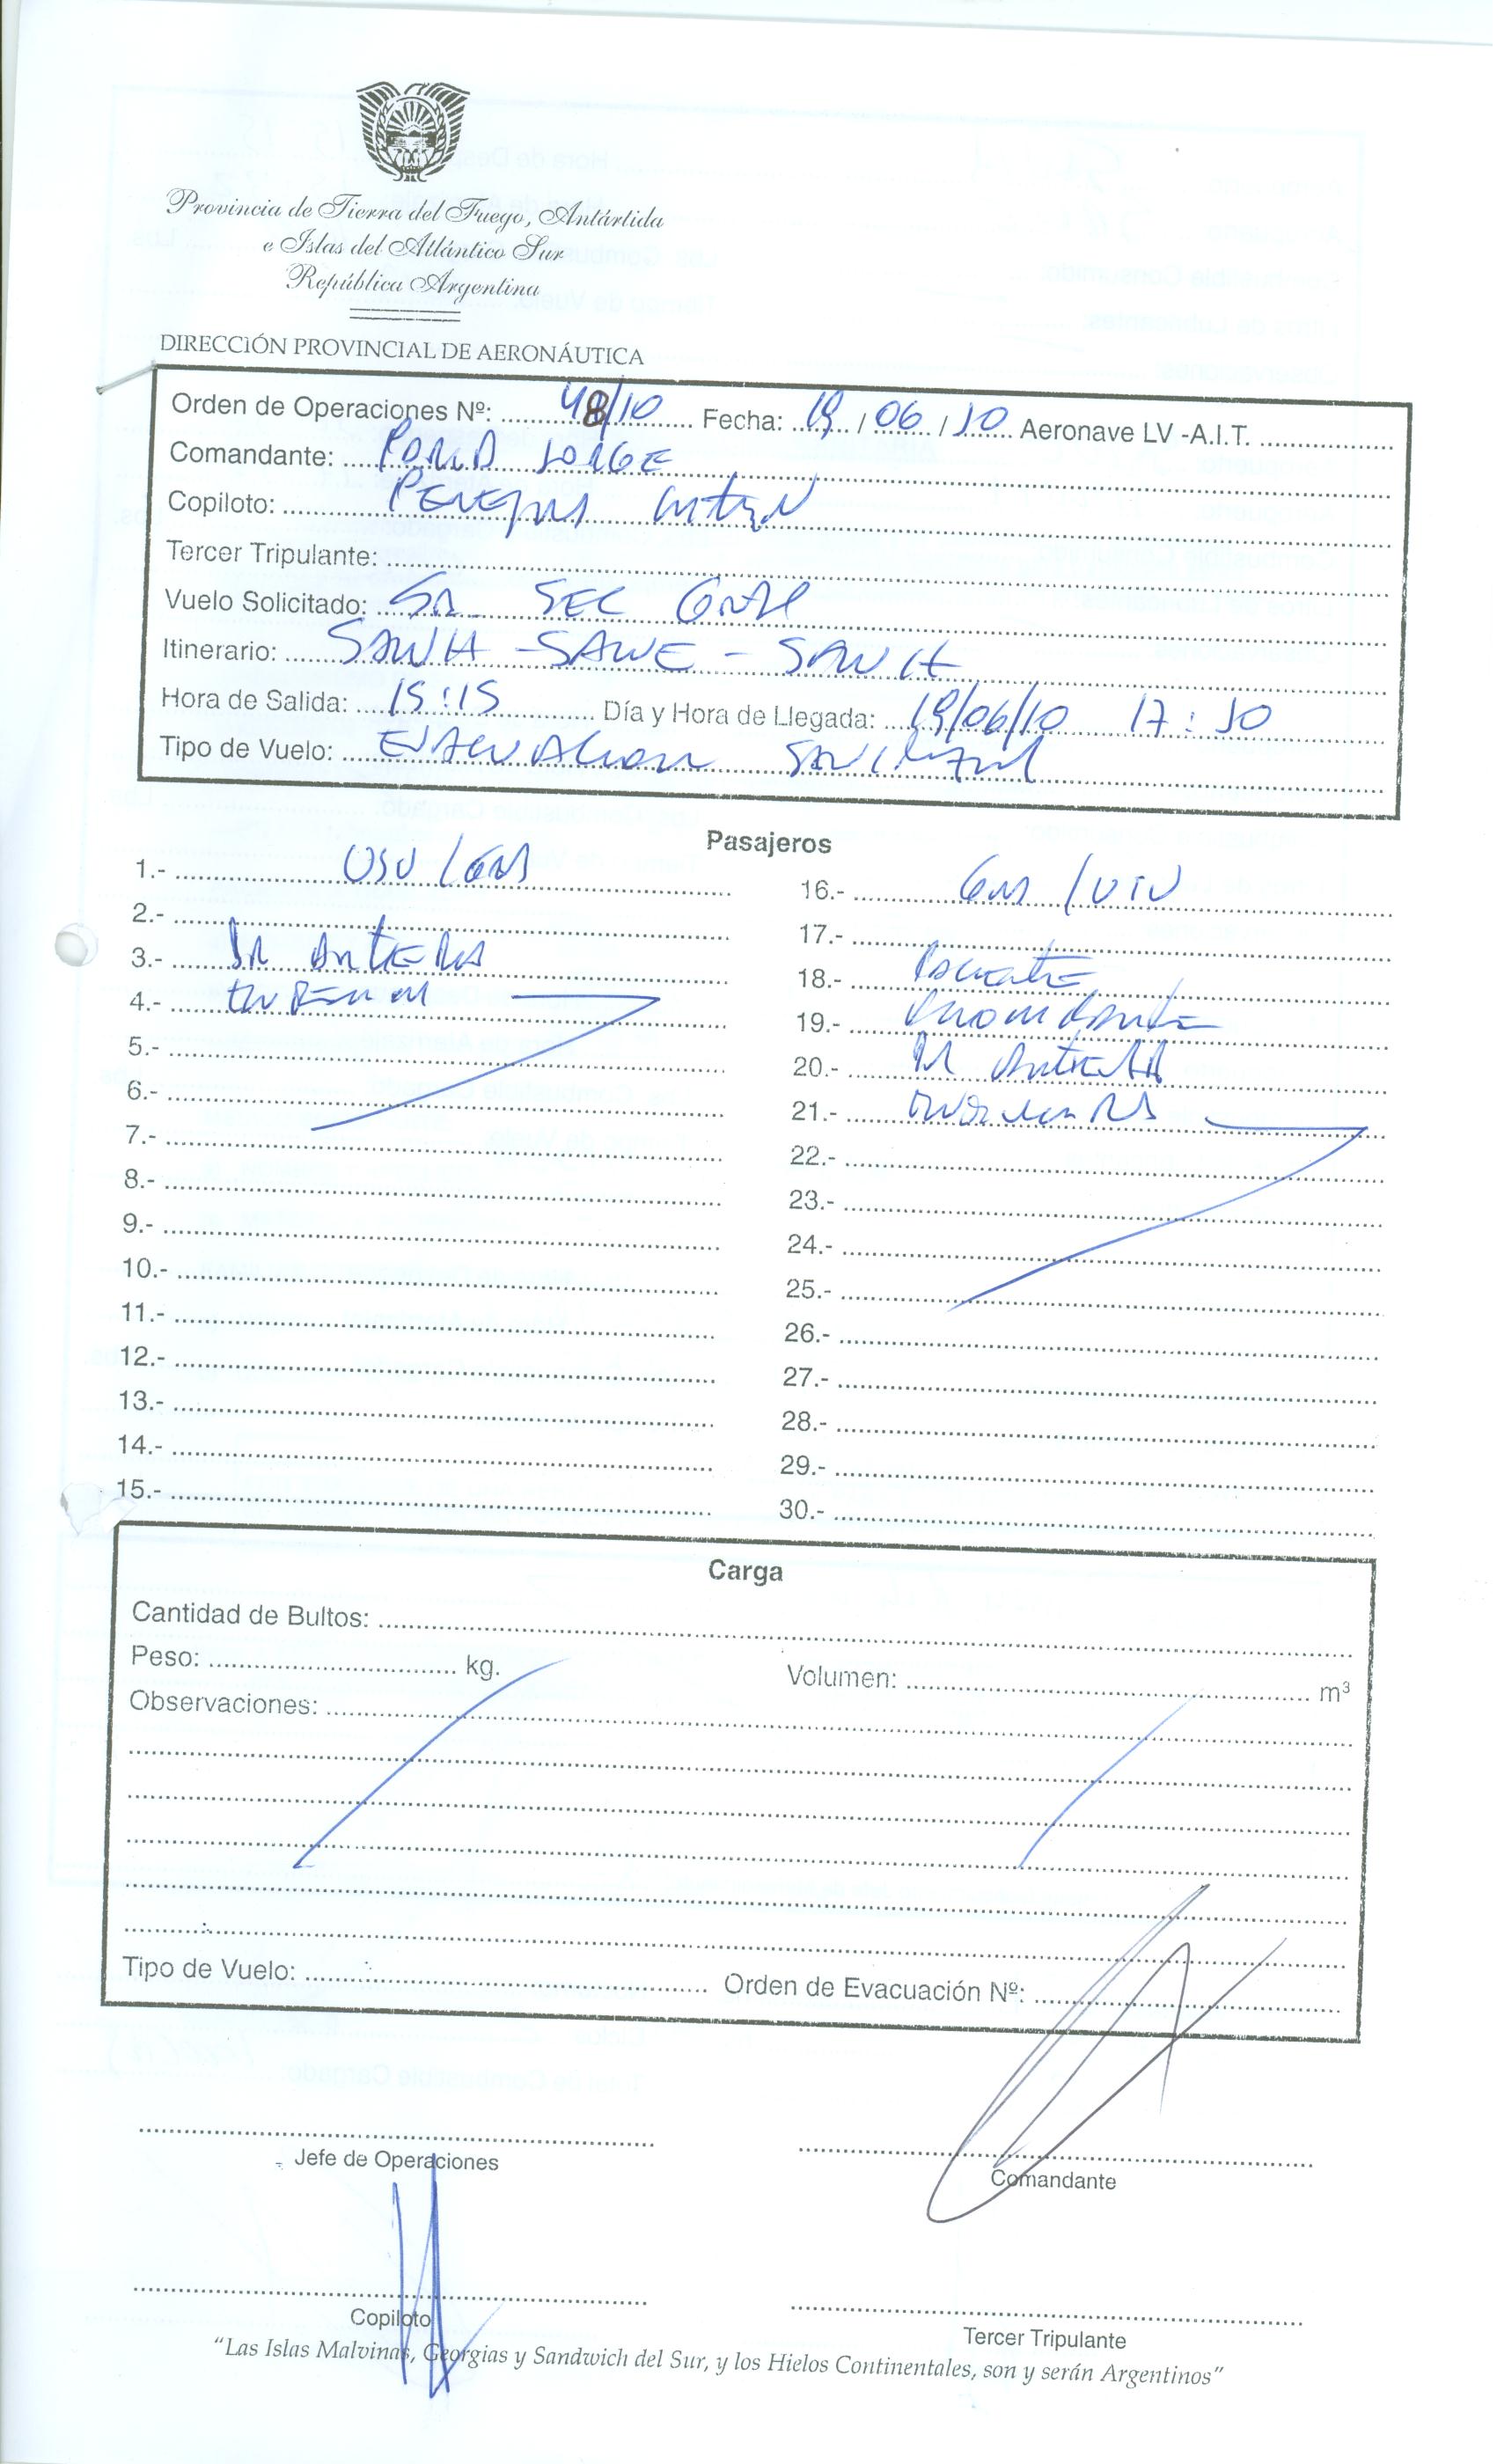 Provincia de Tierra del Fuego, Antártida
e Islas del Atlántico Sur
República Argentina
DIRECCIÓN PROVINCIAL DE AERONÁUTICA
Orden de Operaciones Nº: 48/10 Fecha: 19 / 06 / 10 Aeronave LV -A.I.T.
Comandante: JORGE
Copiloto:
Tercer Tripulante:
Vuelo Solicitado: SR SEC GRAL
Itinerario: SAWH - SAWE - SAWH
Hora de Salida: 15:15 Día y Hora de Llegada: 19/06/10 17:10
Tipo de Vuelo: EVACUACION SANITARIA
Pasajeros
1.- 16.-
2.- 17.-
3.- DR 18.- PACIENTE
4.- 19.-
5.- 20.- DR
6.- 21.-
7.- 22.-
8.- 23.-
9.- 24.-
10.- 25.-
11.- 26.-
12.- 27.-
13.- 28.-
14.- 29.-
15.- 30.-
Carga
Cantidad de Bultos:
Peso: kg. Volumen: m³
Observaciones:
Tipo de Vuelo: Orden de Evacuación Nº:
Jefe de Operaciones Comandante
Copiloto Tercer Tripulante
“Las Islas Malvinas, Georgias y Sandwich del Sur, y los Hielos Continentales, son y serán Argentinos”